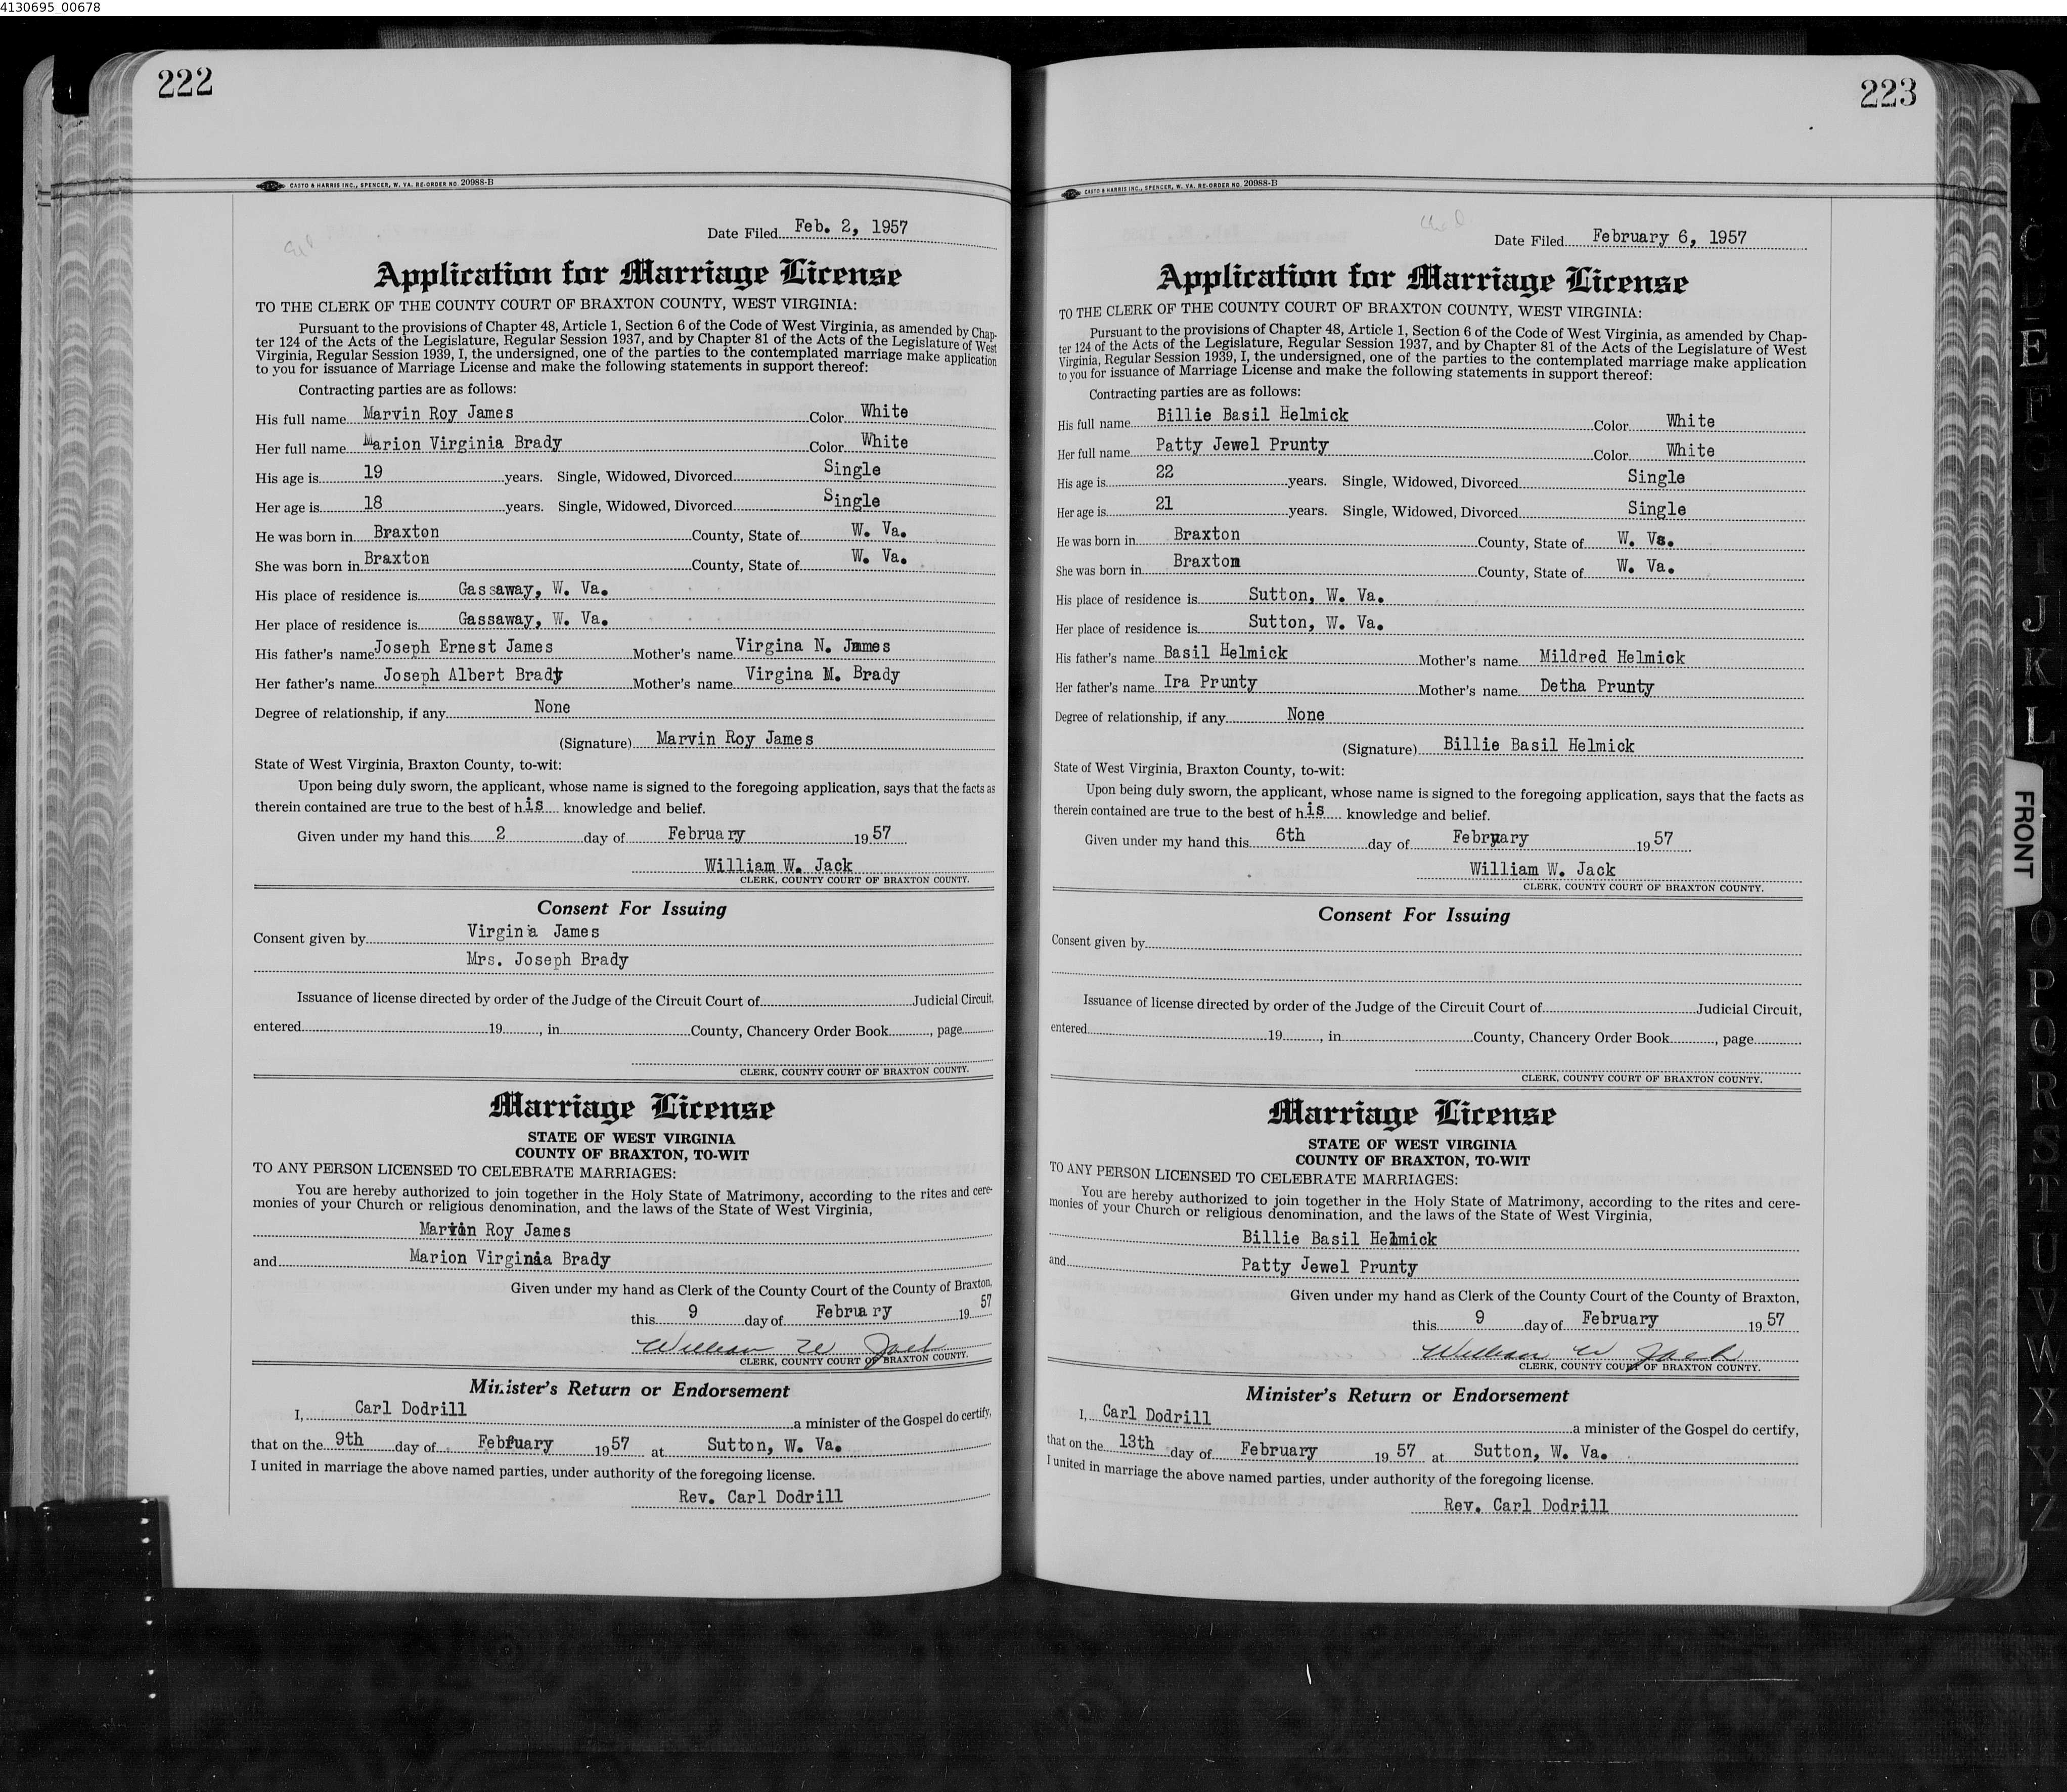 4130695_00678
222
CASTO & HARRIS INC., SPENCER, W. VA. RE-ORDER NO. 20988-B
Date Filed Feb. 2, 1957
Application for Marriage License
TO THE CLERK OF THE COUNTY COURT OF BRAXTON COUNTY, WEST VIRGINIA:
Pursuant to the provisions of Chapter 48, Article 1, Section 6 of the Code of West Virginia, as amended by Chap-
ter 124 of the Acts of the Legislature, Regular Session 1937, and by Chapter 81 of the Acts of the Legislature of West
Virginia, Regular Session 1939, I, the undersigned, one of the parties to the contemplated marriage make application
to you for issuance of Marriage License and make the following statements in support thereof:
Contracting parties are as follows:
His full name Marvin Roy James Color White
Her full name Marion Virginia Brady Color White
His age is 19 years. Single, Widowed, Divorced Single
Her age is 18 years. Single, Widowed, Divorced Single
He was born in Braxton County, State of W. Va.
She was born in Braxton County, State of W. Va.
His place of residence is Gassaway, W. Va.
Her place of residence is Gassaway, W. Va.
His father's name Joseph Ernest James Mother's name Virgina N. James
Her father's name Joseph Albert Brady Mother's name Virgina M. Brady
Degree of relationship, if any None
(Signature) Marvin Roy James
State of West Virginia, Braxton County, to-wit:
Upon being duly sworn, the applicant, whose name is signed to the foregoing application, says that the facts as
therein contained are true to the best of his knowledge and belief.
Given under my hand this 2 day of February 1957
William W. Jack
CLERK, COUNTY COURT OF BRAXTON COUNTY.
Consent For Issuing
Consent given by Virginia James
Mrs. Joseph Brady
Issuance of license directed by order of the Judge of the Circuit Court of Judicial Circuit,
entered 19 , in County, Chancery Order Book , page
CLERK, COUNTY COURT OF BRAXTON COUNTY.
Marriage License
STATE OF WEST VIRGINIA
COUNTY OF BRAXTON, TO-WIT
TO ANY PERSON LICENSED TO CELEBRATE MARRIAGES:
You are hereby authorized to join together in the Holy State of Matrimony, according to the rites and cere-
monies of your Church or religious denomination, and the laws of the State of West Virginia,
Marvin Roy James
and Marion Virginia Brady
Given under my hand as Clerk of the County Court of the County of Braxton,
this 9 day of February 1957
William W Jack
CLERK, COUNTY COURT OF BRAXTON COUNTY.
Minister's Return or Endorsement
I, Carl Dodrill a minister of the Gospel do certify,
that on the 9th day of February 1957 at Sutton, W. Va.
I united in marriage the above named parties, under authority of the foregoing license.
Rev. Carl Dodrill
223
CASTO & HARRIS INC., SPENCER, W. VA. RE-ORDER NO. 20988-B
Date Filed February 6, 1957
Application for Marriage License
TO THE CLERK OF THE COUNTY COURT OF BRAXTON COUNTY, WEST VIRGINIA:
Pursuant to the provisions of Chapter 48, Article 1, Section 6 of the Code of West Virginia, as amended by Chap-
ter 124 of the Acts of the Legislature, Regular Session 1937, and by Chapter 81 of the Acts of the Legislature of West
Virginia, Regular Session 1939, I, the undersigned, one of the parties to the contemplated marriage make application
to you for issuance of Marriage License and make the following statements in support thereof:
Contracting parties are as follows:
His full name Billie Basil Helmick Color White
Her full name Patty Jewel Prunty Color White
His age is 22 years. Single, Widowed, Divorced Single
Her age is 21 years. Single, Widowed, Divorced Single
He was born in Braxton County, State of W. Va.
She was born in Braxton County, State of W. Va.
His place of residence is Sutton, W. Va.
Her place of residence is Sutton, W. Va.
His father's name Basil Helmick Mother's name Mildred Helmick
Her father's name Ira Prunty Mother's name Detha Prunty
Degree of relationship, if any None
(Signature) Billie Basil Helmick
State of West Virginia, Braxton County, to-wit:
Upon being duly sworn, the applicant, whose name is signed to the foregoing application, says that the facts as
therein contained are true to the best of his knowledge and belief.
Given under my hand this 6th day of February 1957
William W. Jack
CLERK, COUNTY COURT OF BRAXTON COUNTY.
Consent For Issuing
Consent given by
Issuance of license directed by order of the Judge of the Circuit Court of Judicial Circuit,
entered 19 , in County, Chancery Order Book , page
CLERK, COUNTY COURT OF BRAXTON COUNTY.
Marriage License
STATE OF WEST VIRGINIA
COUNTY OF BRAXTON, TO-WIT
TO ANY PERSON LICENSED TO CELEBRATE MARRIAGES:
You are hereby authorized to join together in the Holy State of Matrimony, according to the rites and cere-
monies of your Church or religious denomination, and the laws of the State of West Virginia,
Billie Basil Helmick
and Patty Jewel Prunty
Given under my hand as Clerk of the County Court of the County of Braxton,
this 9 day of February 1957
William W Jack
CLERK, COUNTY COURT OF BRAXTON COUNTY.
Minister's Return or Endorsement
I, Carl Dodrill a minister of the Gospel do certify,
that on the 13th day of February 1957 at Sutton, W. Va.
I united in marriage the above named parties, under authority of the foregoing license.
Rev. Carl Dodrill
FRONT
C
E
F
I
J
K
L
O
P
Q
R
S
T
U
V
W
X
Y
Z